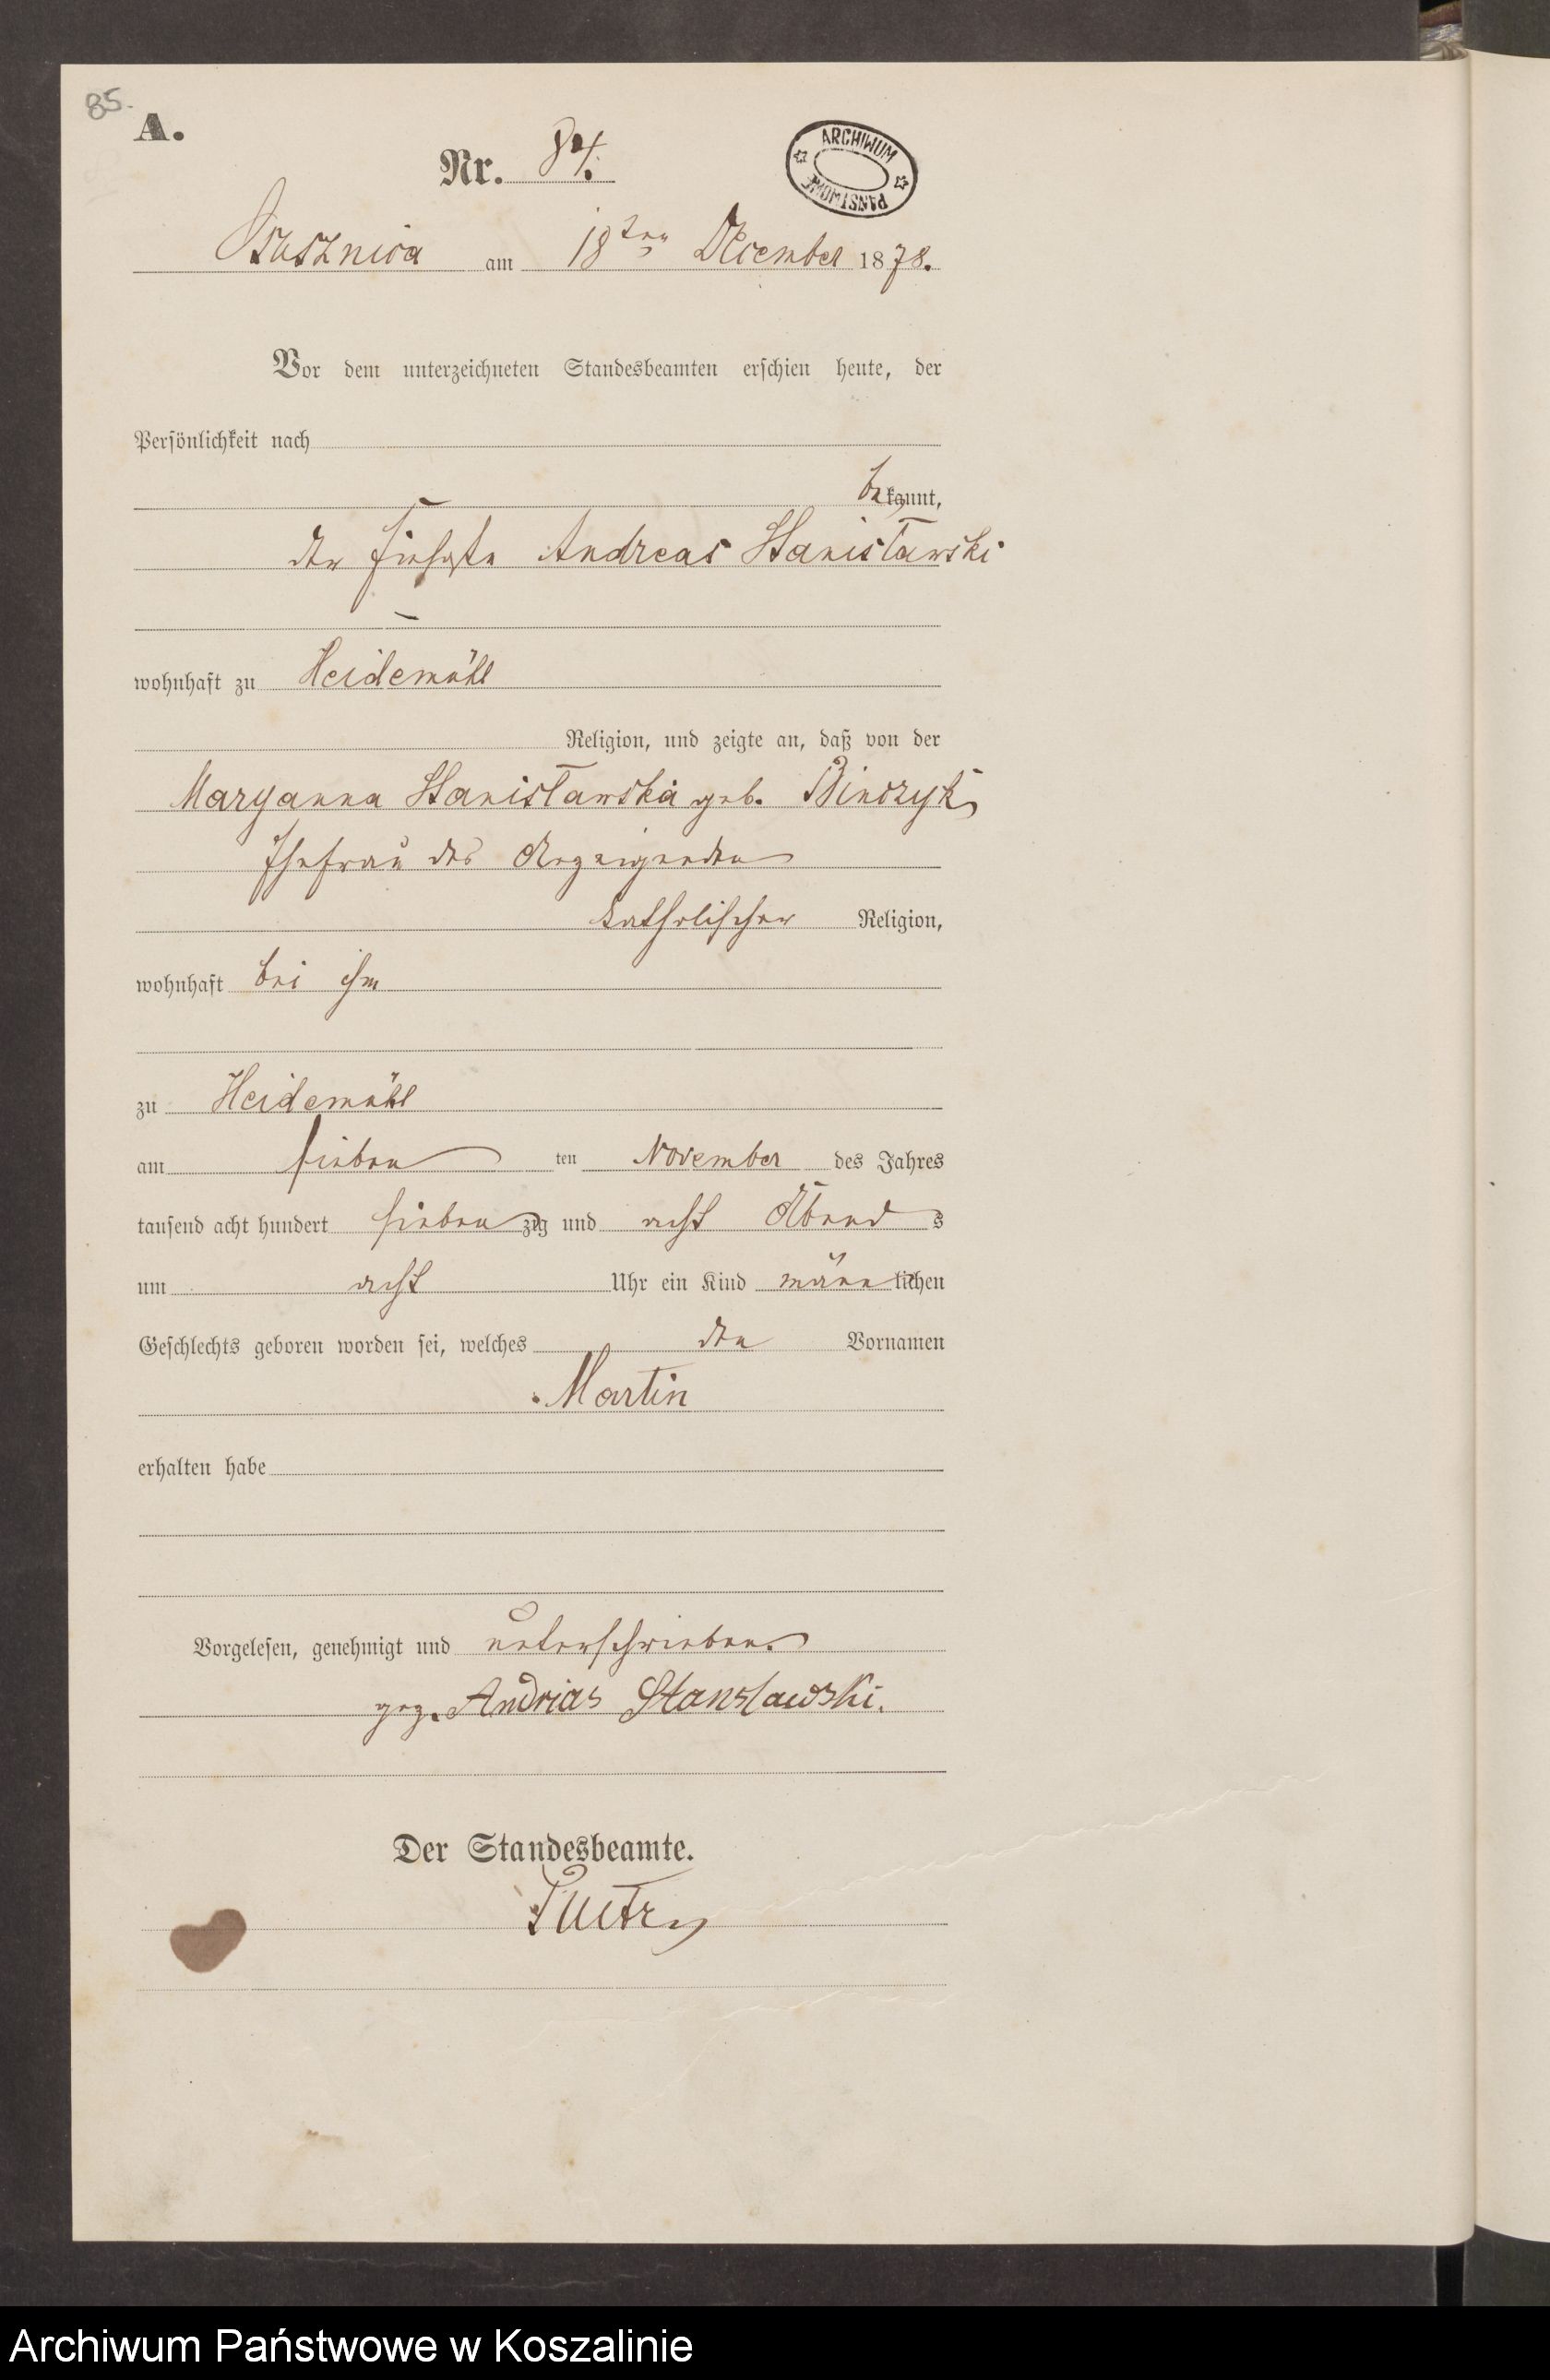 85.
A.
Nr. 84.
ARCHIWUM PAŃSTWOWE
Osusznica am 18ten December 1878.
Vor dem unterzeichneten Standesbeamten erschien heute, der
Persönlichkeit nach
bekannt,
der Andreas Stanisławski
wohnhaft zu Heidemühl
Religion, und zeigte an, daß von der
Maryanna Stanisławska geb. Binczyk
Ehefrau des Anzeigenden
katholischer Religion,
wohnhaft bei ihm
zu Heidemühl
am sieben ten November des Jahres
tausend acht hundert siebenzig und acht Abends
um acht Uhr ein Kind männlichen
Geschlechts geboren worden sei, welches den Vornamen
Martin
erhalten habe
Vorgelesen, genehmigt und unterschrieben.
gez. Andrias Stansławski.
Der Standesbeamte.
Archiwum Państwowe w Koszalinie